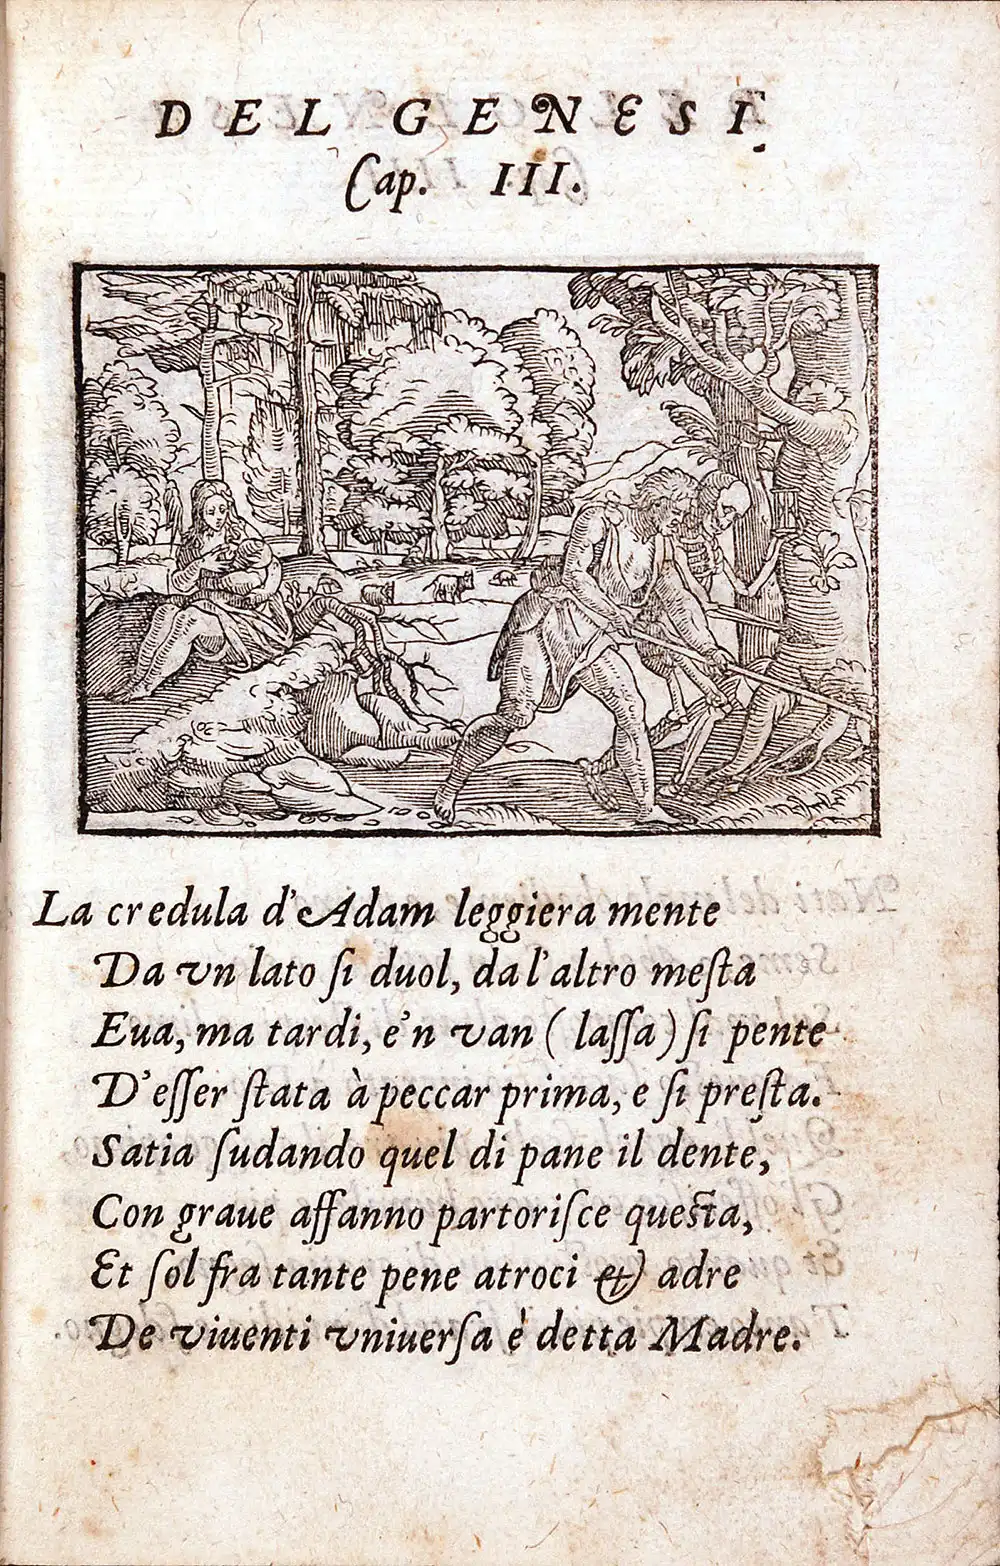 DEL GENESI.
Cap. III.
La credula d'Adam leggiera mente
Da vn lato ſi duol, da l'altro meſta
Eua, ma tardi, e'n van ( laſſa ) ſi pente
D'eſſer ſtata à peccar prima, e ſi preſta.
Satia ſudando quel di pane il dente,
Con graue affanno partoriſce queſta,
Et ſol fra tante pene atroci & adre
De viuenti vniuerſa è detta Madre.